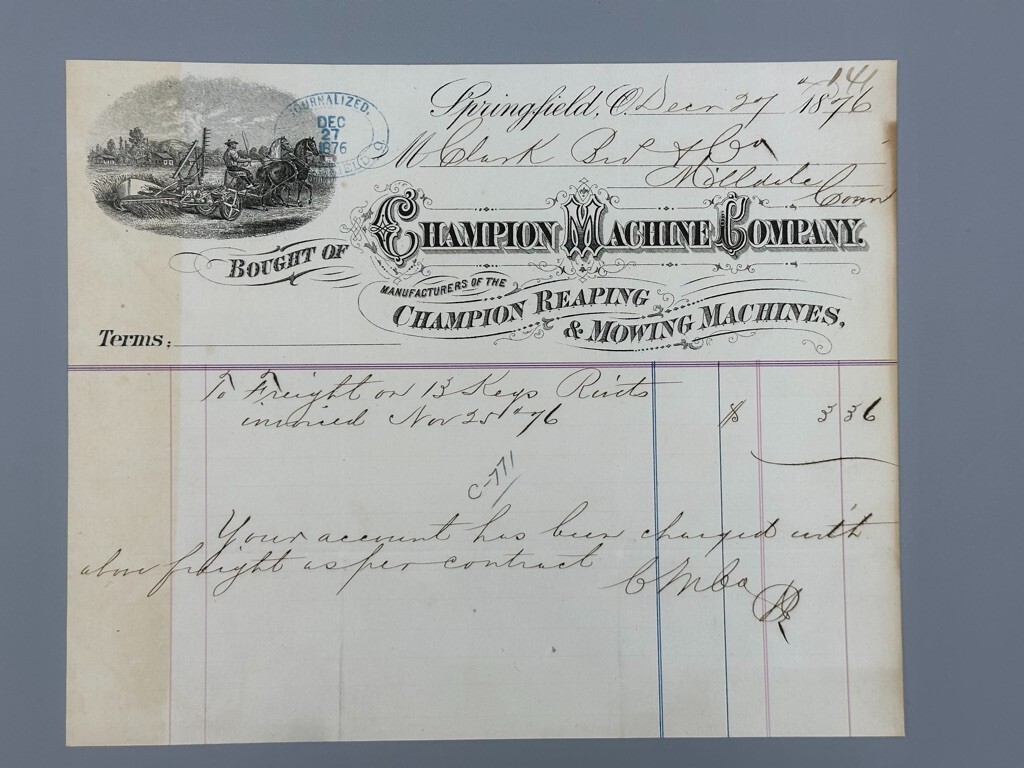 141
Springfield, O. Decr 27 1876
JOURNALIZED,
DEC
27
1876
M Clark Bro & Co
Milldale
Conn
BOUGHT OF CHAMPION MACHINE COMPANY.
MANUFACTURERS OF THE
CHAMPION REAPING
& MOWING MACHINES,
Terms:
To Freight on 13 Kegs Rivits
invoiced Nov 25" 76 $ 3 36
C-771
Your account has been charged with
above freight as per contract
C M Co